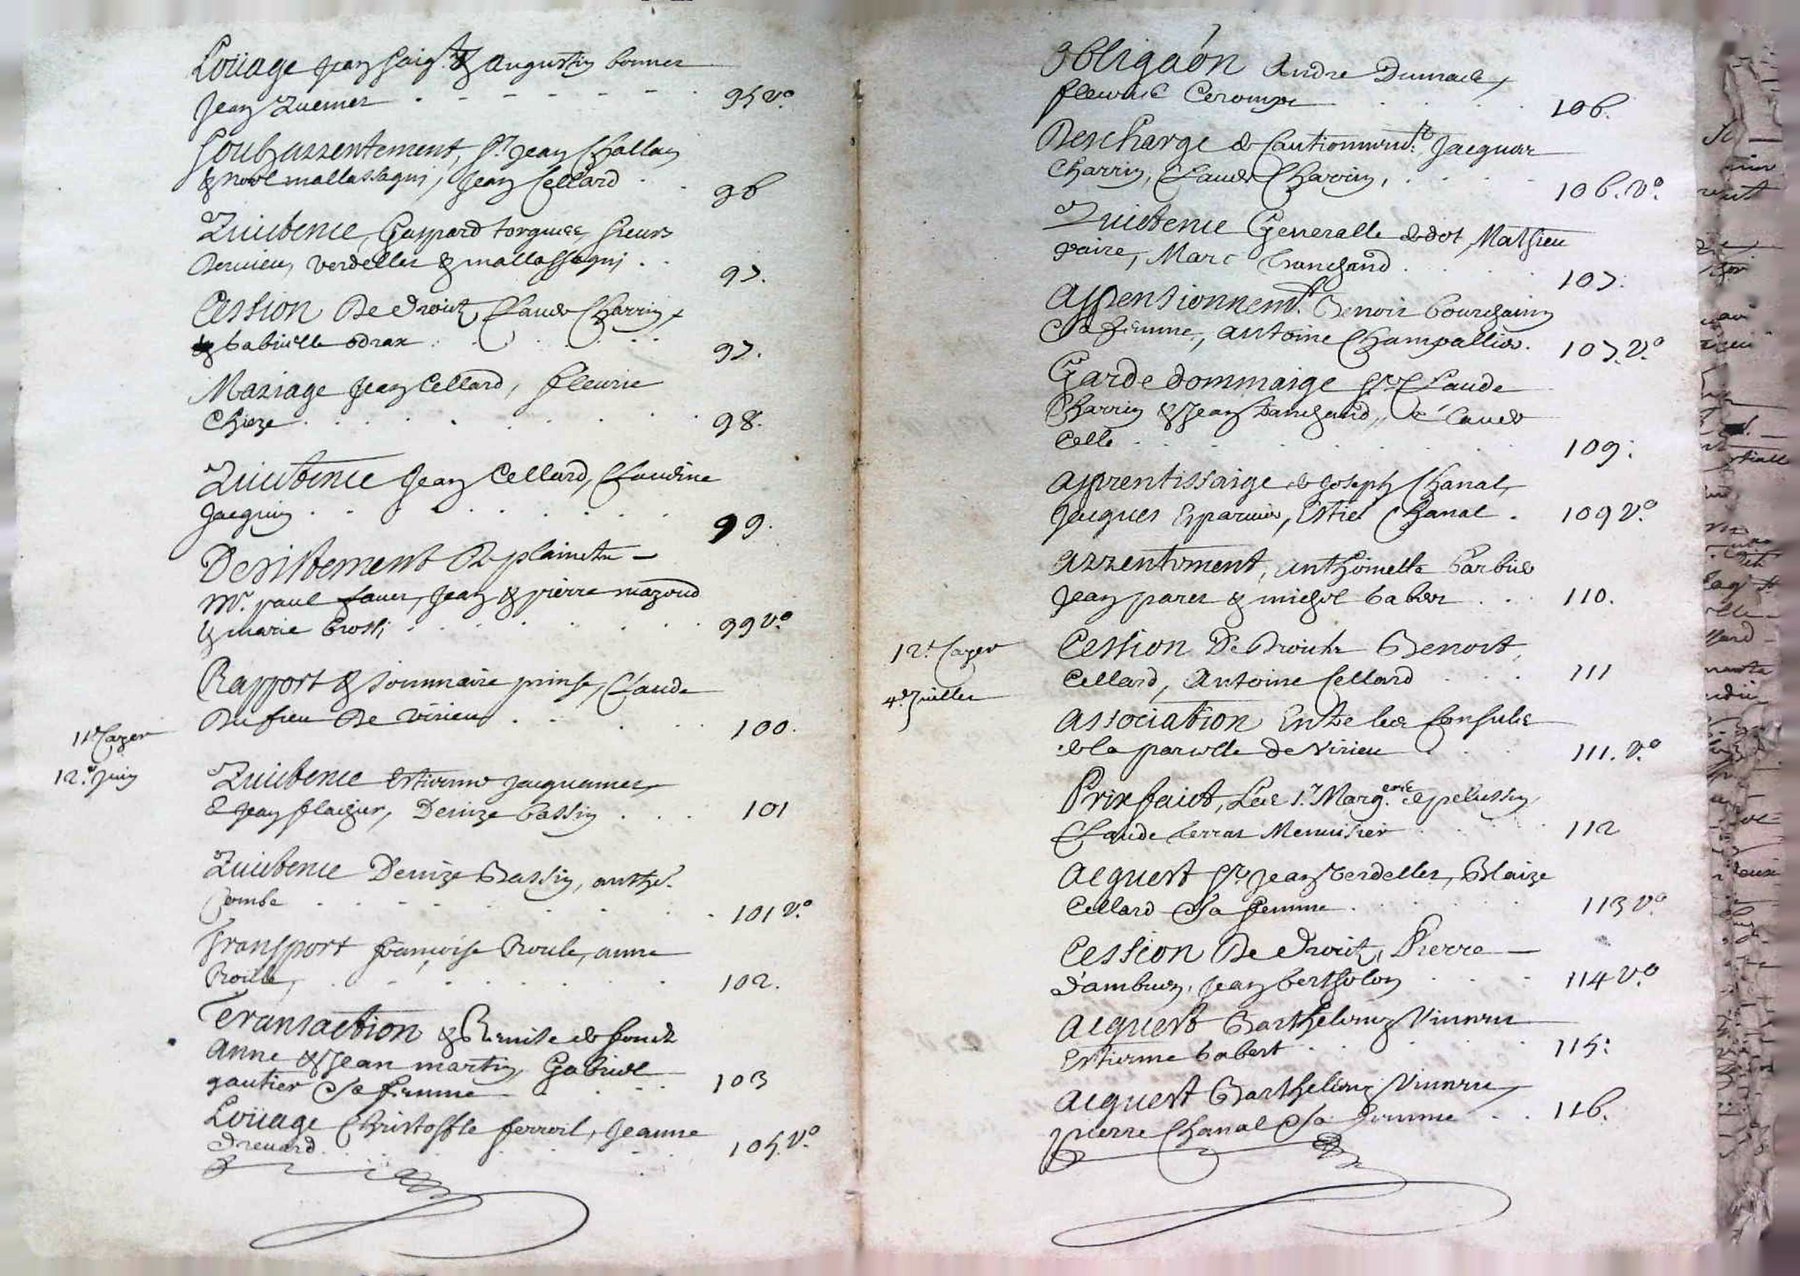 Loüage Jean & augustin bonnet
Jean 95 v.o
Soubzarrentement, Sr. Jean Challan
& noel mallassagny, Jean Cellard 96
Quictence, Gaspard torgues, sieurs
verdellet & mallassagny 97.
Cession De droict Claude Charrin,
& Gabrielle odrax 97.
Mariage Jean Cellard, fleurie
Chieze 98.
Quictence Jean Cellard, Claudine
Jacquin 99.
Desistement De plaincte
Mr. paul faure, Jean & pierre mazoud
& marie Crosti 99 v.o
Rapport & sommaire prinse, Claude
Du fieu De virieu 100.
11e Cayer
12e Juin
Quictence Estienne Jacquemet
& Jean flachier, Denize bassin 101
Quictence Denize Bassin, anthe.
Combe 101 v.o
Transport françoise Roule, anne
Roille, 102.
Transaction & Remise de fondz
Anne & Jean martin Gabriel
gautier & sa femme 103
Loüage Christoffle ferreol, Jeanne
Drevard 105. v.o
Obligaon Andre Dumas
fleurie Cerompt 106.
Descharge de Cautionnemt. Jacques
Charrin, Claude Charrin, 106. v.o
Quictence Generalle de dot Mathieu
vaire, Marc tranchand 107.
Appensionnemt. Benoit bourchanin
& sa femme, antoine Champallier. 107. v.o
Garde dommaige Sr. Claude
Charrin & Jean tranchand, & Claude
Celle 109.
Apprentissaige de Joseph Chanal,
Jacques Esparvier, Estie. Chanal . 109 v.o
Arrentement, anthoinette barbier
Jean paret & michel babert 110.
12e Cayer
Cession De Droicts Benoit
Cellard, Antoine Cellard 111
4e Juillet
Association Entre les Consulz
de la parcelle de virieu 111. v.o
Prixfaict, Les Sr. Marg. de pelussin,
Claude terras Menuisier 112
Acquest Sr. Jean verdellet, Blaize
Cellard & sa femme 113 v.o
Cession De droict, Pierre
d'ambuen, Jean bertholon 114 v.o
Acquest Barthelemy Vincent
Estienne babert 115.
Acquest Barthelemy Vincent
pierre Chanal & sa femme 116.